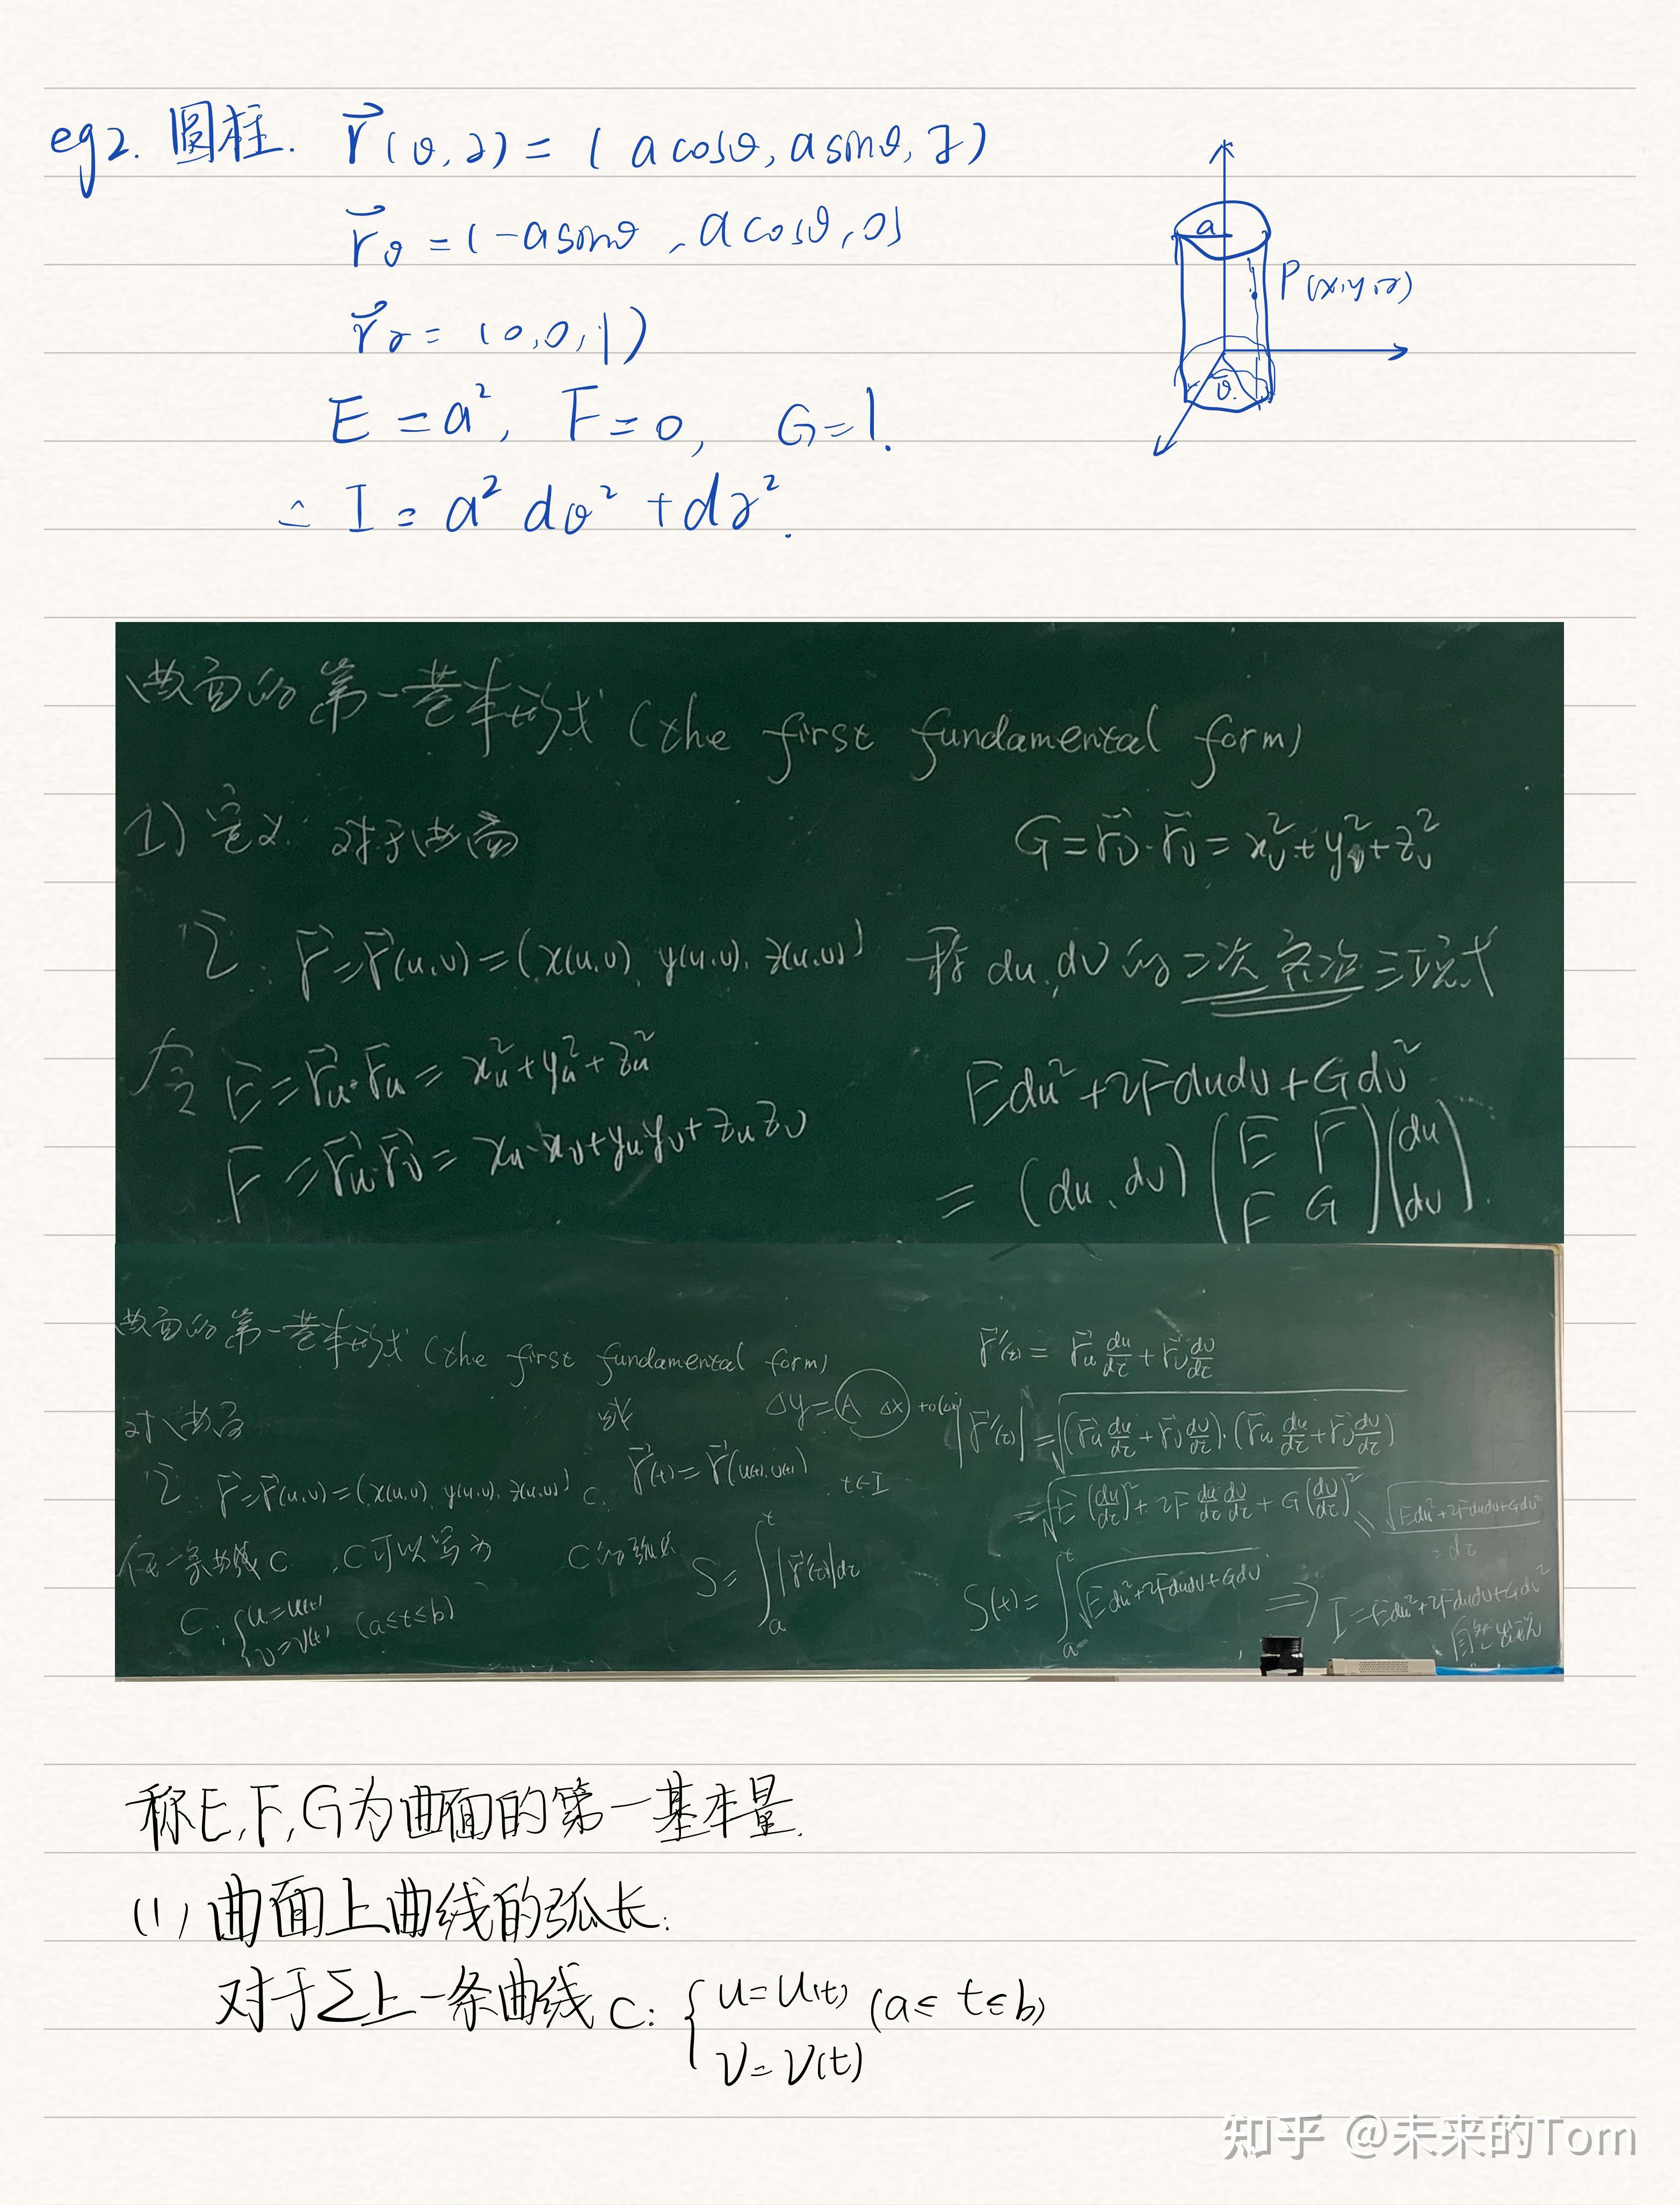 eg2. 圆柱. r⃗(θ,z) = (a cosθ, a sinθ, z)
r⃗θ = (-a sinθ, a cosθ, 0)
r⃗z = (0,0,1)
E = a², F = 0, G = 1.
∴ I = a² dθ² + dz².
a
P(x,y,z)
θ
曲面的第一基本形式 (the first fundamental form)
1) 定义: 对于曲面
Σ: r⃗ = r⃗(u,v) = (x(u,v), y(u,v), z(u,v))
令 E = r⃗u·r⃗u = xu² + yu² + zu²
F = r⃗u·r⃗v = xu·xv + yu yv + zu zv
G = r⃗v·r⃗v = xv² + yv² + zv²
称 du, dv 的二次齐次三项式
Edu² + 2Fdudv + Gdv²
= (du, dv) (E F / F G) (du / dv).
曲面的第一基本形式 (the first fundamental form)
对于曲面
Σ: r⃗ = r⃗(u,v) = (x(u,v), y(u,v), z(u,v))
任一条曲线C, C可以写为
C: { u = u(t)
v = v(t) (a≤t≤b)
或 Δy = A Δx + o(Δx)
C: r⃗(t) = r⃗(u(t), v(t)) t∈I
C的弧长 S = ∫ₐᵗ |r⃗'(τ)|dτ
r⃗'(τ) = r⃗u du/dτ + r⃗v dv/dτ
|r⃗'(τ)| = √((r⃗u du/dτ + r⃗v dv/dτ)·(r⃗u du/dτ + r⃗v dv/dτ))
= √(E(du/dτ)² + 2F du/dτ dv/dτ + G(dv/dτ)²) = √(Edu² + 2Fdudv + Gdv²)
dτ
S(t) = ∫ₐᵗ √(Edu² + 2Fdudv + Gdv²) ⇒ I = Edu² + 2Fdudv + Gdv²
称E,F,G为曲面的第一基本量.
(1) 曲面上曲线的弧长:
对于Σ上一条曲线 C: { u = u(t) (a≤t≤b)
v = v(t)
知乎 @未来的Tom